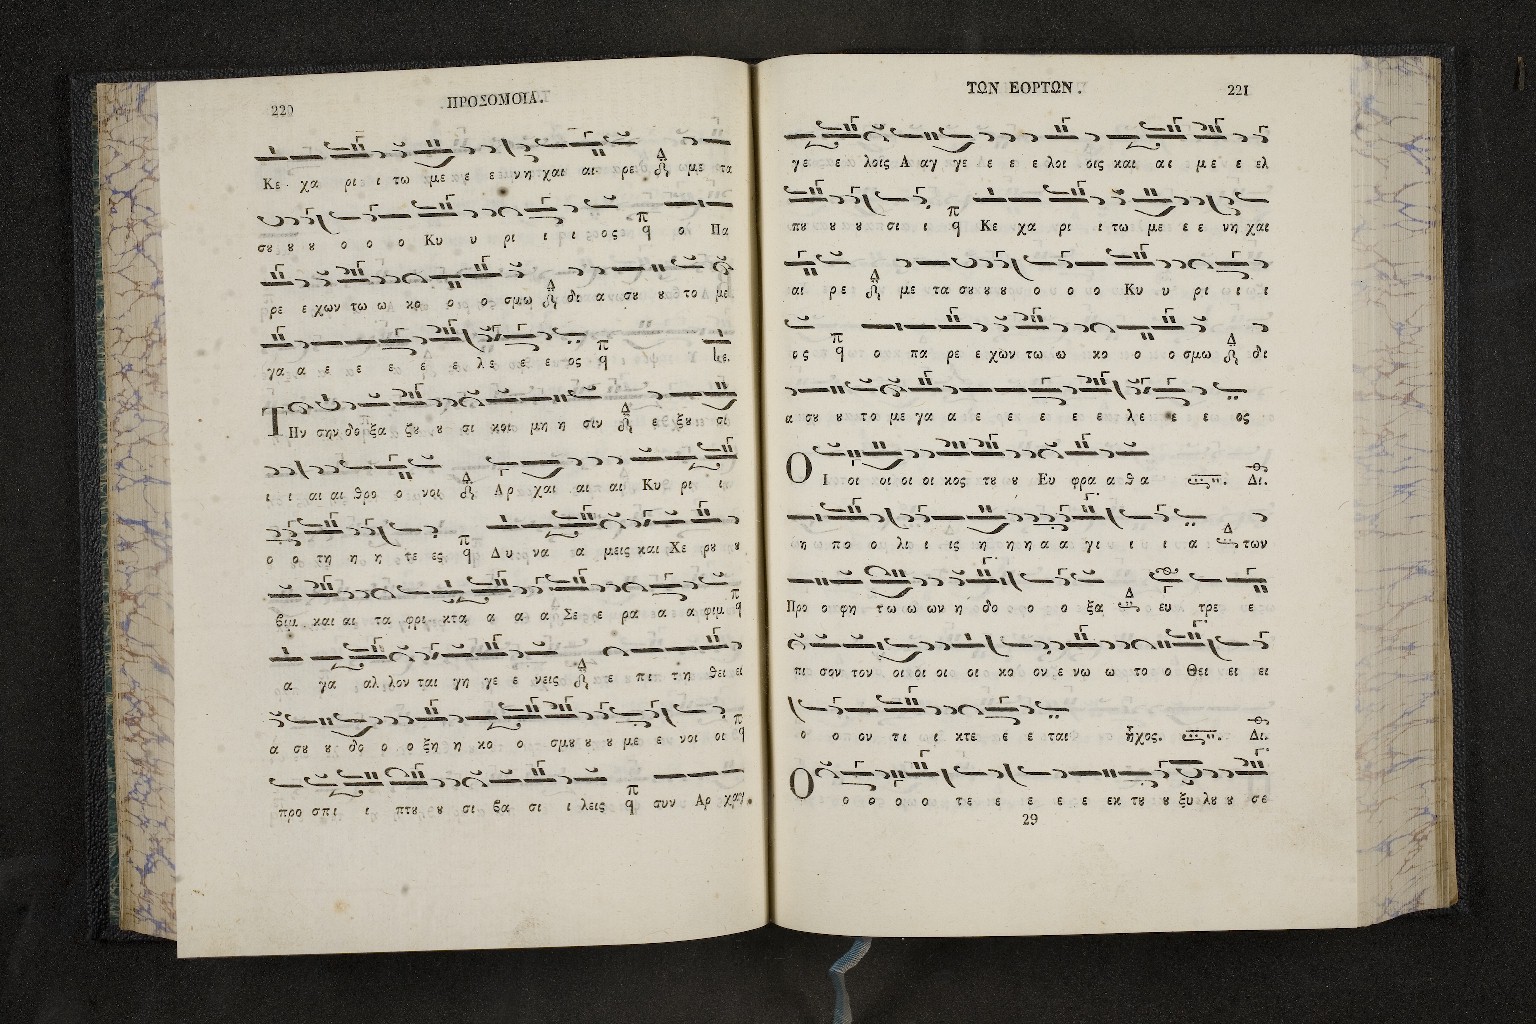 220
ΠΡΟΣΟΜΟΙΑ.
Κε χα ρι ι τω με ε ε νη χαι αι ρε με τα
σȣ ȣ ȣ ο ο ο Κυ υ ρι ι ι ος ο Πα
ρε ε χων τω ω κο ο ο σμω δι α σȣ ȣ το με
γα α ε ε ε ε ε λε ε ε ος
Την σην δο ξα ζȣ ȣ σι κοι μη η σιν ε ξȣ σι
ι ι αι αι θρο ο νοι Αρ χαι αι αι Κυ ρι ι
ο ο τη η η τε ες Δυ να α μεις και Χε ρȣ ȣ
βιμ και αι τα φρι κτα α α α Σε ε ρα α α φιμ
α γα αλ λον ται γη γε ε νεις ε πι τη θει ει
α σȣ ȣ δο ο ο ξη η κο ο σμȣ ȣ ȣ με ε νοι οι
προ σπι ι πτȣ ȣ σι βα σι ι λεις συν Αρ χαγ
ΤΩΝ ΕΟΡΤΩΝ.
221
γε ε λοις Α αγ γε ε ε ε λοι οις και αι με ε ελ
πȣ ȣ ȣ σι ι Κε χα ρι ι τω με ε ε νη χαι
αι ρε με τα σȣ ȣ ȣ ο ο ο Κυ υ ρι ι ι
ος ο πα ρε ε χων τω ω κο ο ο σμω δι
α σȣ ȣ το με γα α ε ε ε ε ε λε ε ε ος
Ο Ι οι οι οι οι κος τȣ ȣ Ευ φρα α θα Δι.
η πο ο λι ι ις η η η α α γι ι ι α των
Προ ο φη τω ω ων η δο ο ο ξα ευ τρε ε
πι σον τον οι οι οι οι κο ον ε νω ω το ο Θει ει ει
ο ο ον τι ι κτε ε ε ται ἦχος. Δι.
Ο ο ο ο ο τε ε ε ε ε εκ τȣ ȣ ξυ λȣ ȣ σε
29